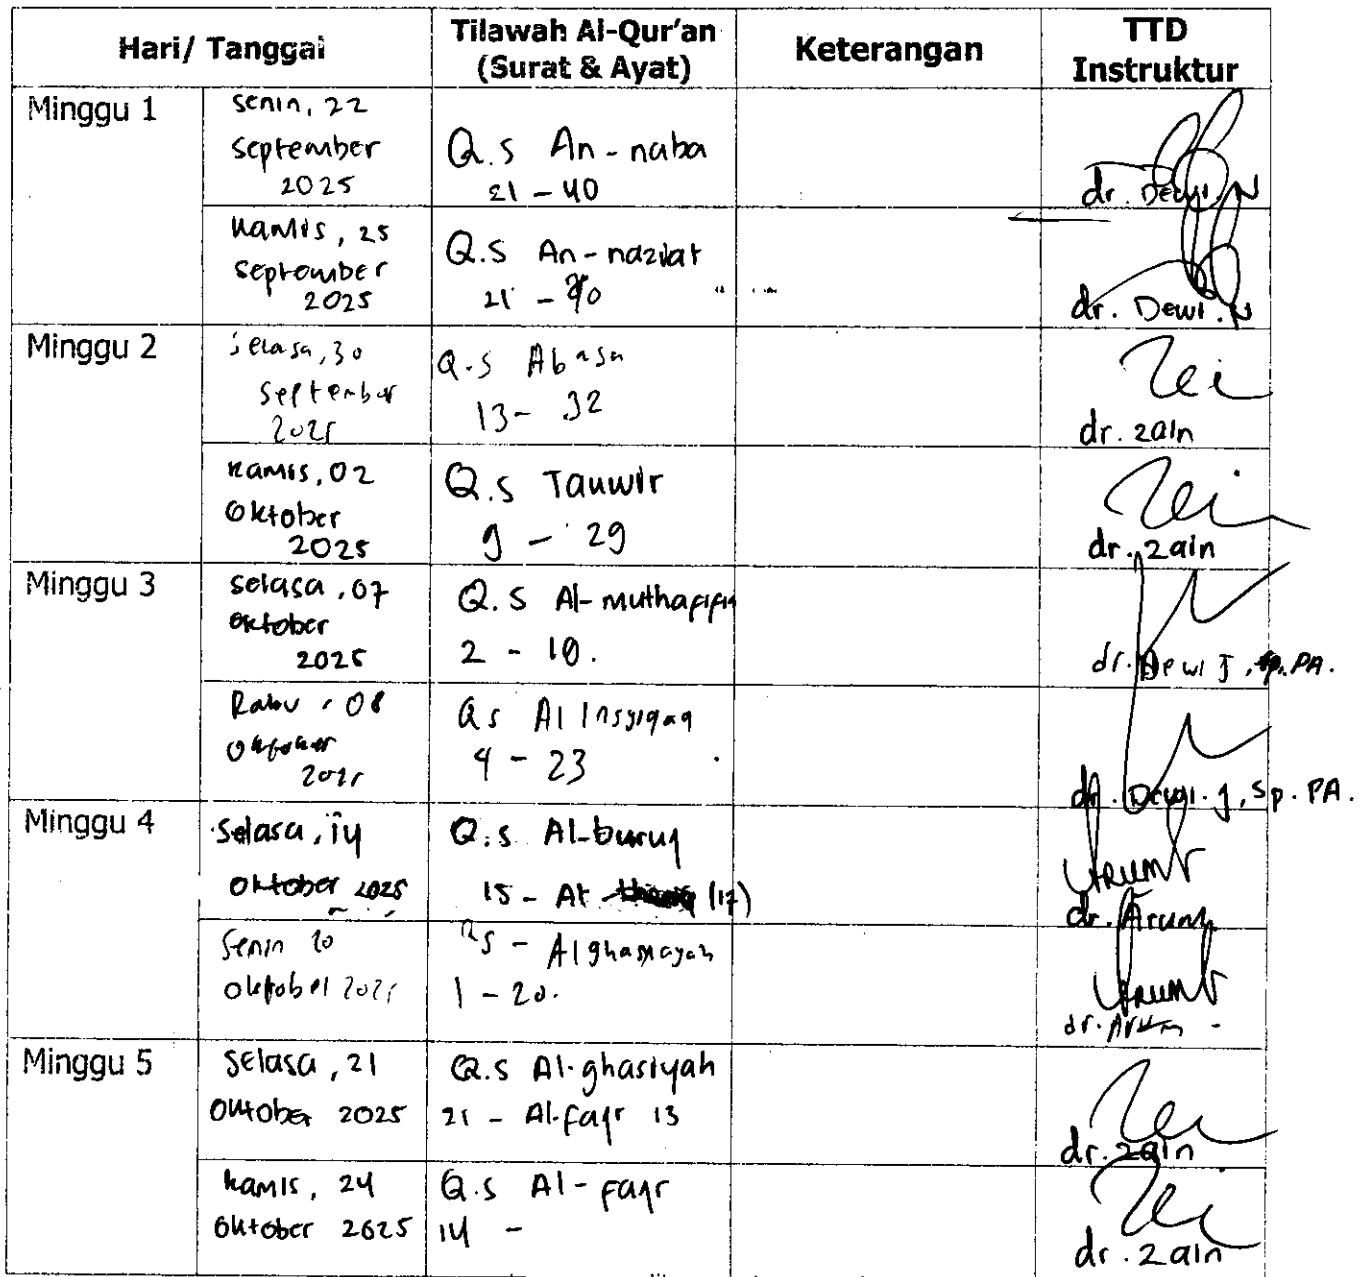 Hari/ Tanggal
Tilawah Al-Qur'an
(Surat & Ayat)
Keterangan
TTD
Instruktur
Minggu 1
Senin, 22
September
2025
Q.S An-naba
21 - 40
dr. Dewi. N
Kamis, 25
September
2025
Q.S An-naziat
21 - 40
dr. Dewi. N
Minggu 2
Selasa, 30
September
2025
Q.S Abasa
13 - 32
dr. Zain
Kamis, 02
Oktober
2025
Q.S Tauwir
9 - 29
dr. Zain
Minggu 3
Selasa, 07
Oktober
2025
Q.S Al-muthafifin
2 - 10.
dr. Dewi J, Sp. PA.
Rabu, 08
Oktober
2025
Qs Al Insyiqaq
4 - 23
dr. Dewi. J, Sp. PA.
Minggu 4
Selasa, 14
Oktober 2025
Q.S Al-buruj
15 - At (17)
dr. Arum
Senin 20
Oktober 2025
Qs - Alghasyayah
1 - 20.
dr. Arum
Minggu 5
Selasa, 21
Oktober 2025
Q.S Al-ghasiyah
21 - Al-fajr 13
dr. Zain
Kamis, 24
Oktober 2025
Q.S Al-fajr
14 -
dr. Zain